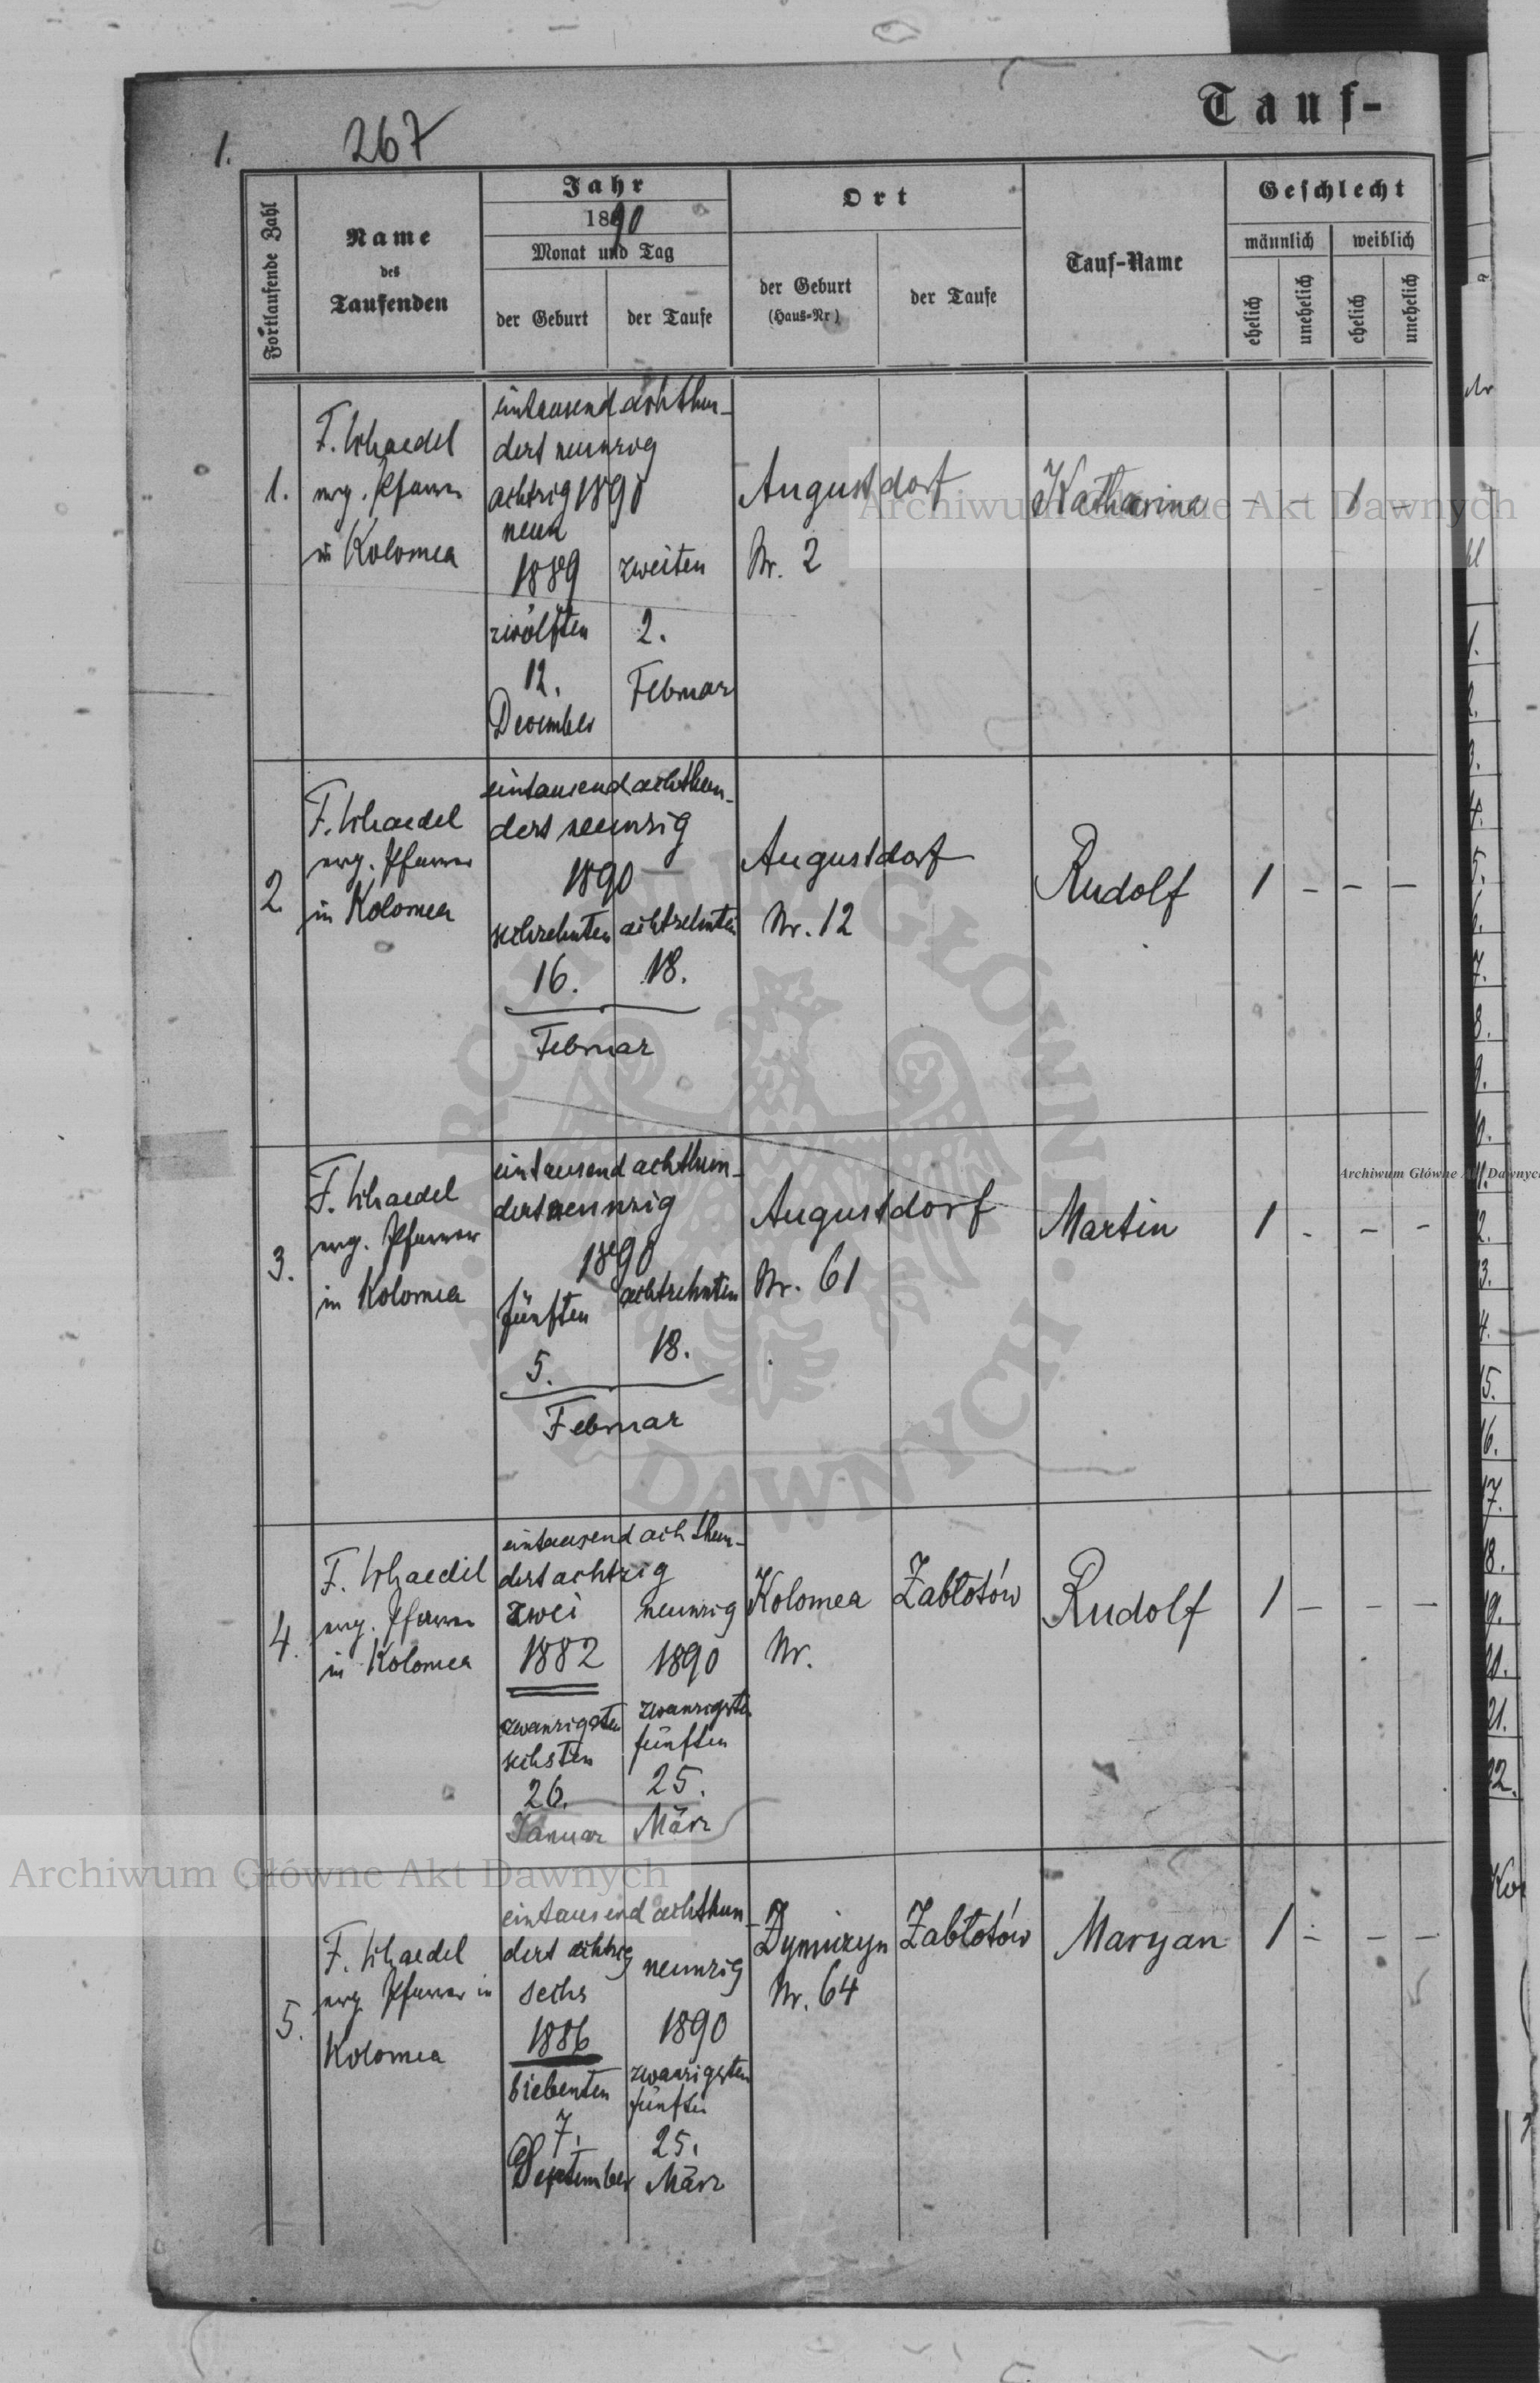 Tauf-
1.
267
Fortlaufende Zahl
Name
des
Taufenden
Jahr
1890
Monat und Tag
der Geburt
der Taufe
Ort
der Geburt
(Haus-Nr)
der Taufe
Tauf-Name
Geschlecht
männlich
weiblich
ehelich
unehelich
ehelich
unehelich
1.
F.
evg. Pfarrer
in Kolomea
eintausend achthun-
dert neunzig
achtzig 1890
neun
1889
zwölften
12.
December
zweiten
2.
Februar
Augustdorf
Nr. 2
Katharina
- - 1 -
2
F.
evg. Pfarrer
in Kolomea
eintausend achthun-
dert neunzig
1890
sechzehnten achtzehnten
16. 18.
Februar
Augustdorf
Nr. 12
Rudolf
1 - - -
3.
F.
evg. Pfarrer
in Kolomea
eintausend achthun-
dert neunzig
1890
fünften achtzehnten
5. 18.
Februar
Augustdorf
Nr. 61
Martin
1 - - -
4.
F.
evg. Pfarrer
in Kolomea
eintausend achthun-
dert achtzig
zwei
1882
zwanzigsten
sechsten
26.
Januar
neunzig
1890
zwanzigsten
fünften
25.
März
Kolomea
Nr.
Zabłotów
Rudolf
1 - - -
5.
F.
evg. Pfarrer in
Kolomea
eintausend achthun-
dert achtzig
sechs
1886
siebenten
7.
September
neunzig
1890
zwanzigsten
fünften
25.
März
Nr. 64
Zabłotów
Maryan
1 - - -
Archiwum Główne Akt Dawnych
Archiwum Główne Akt Dawnych
Archiwum Główne Akt Dawnych
ARCHIWUM GŁÓWNE AKT DAWNYCH